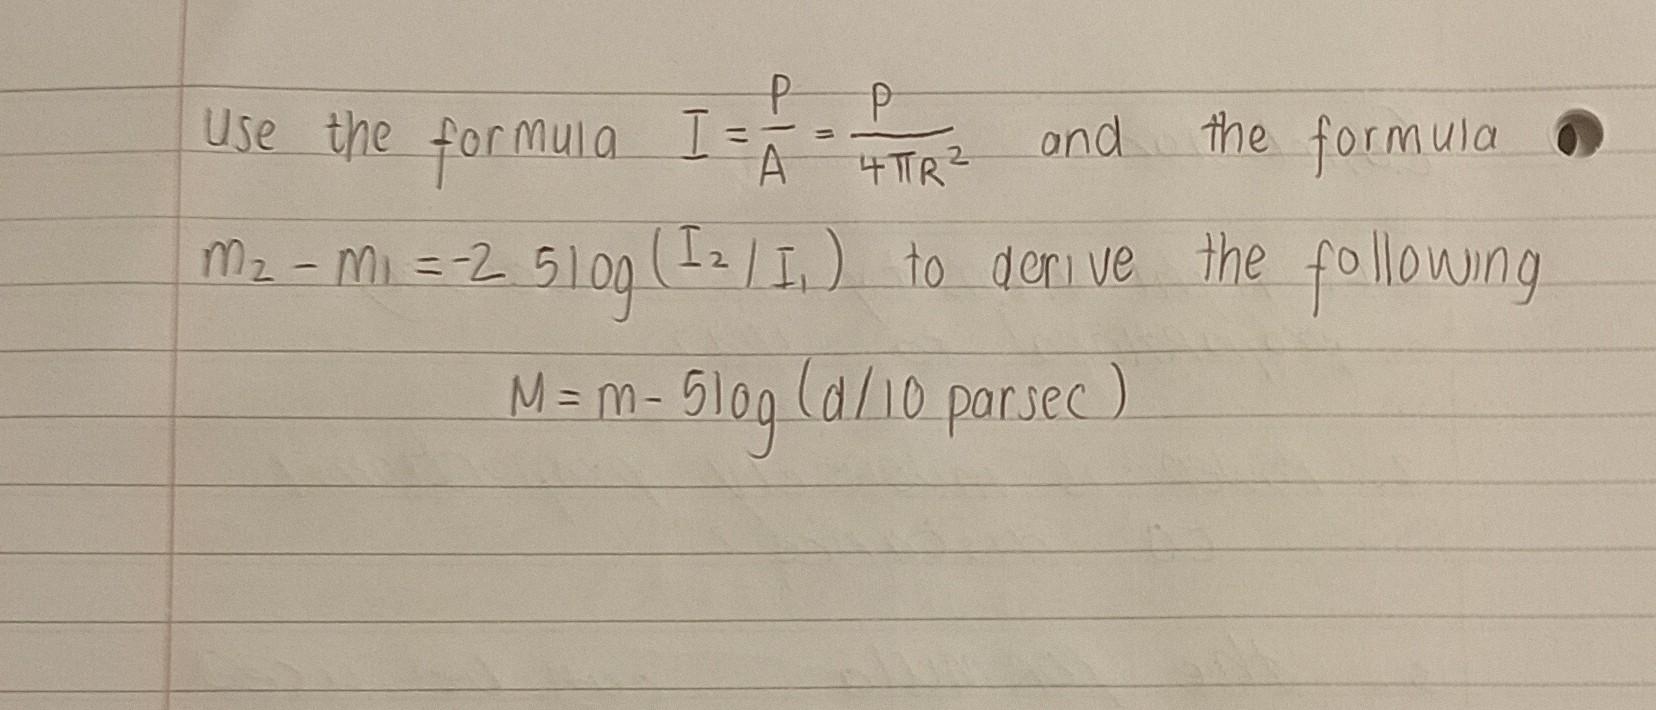 Use the formula I = P/A = P/4πR² and the formula
m₂ - m₁ = -2 5log(I₂/I₁) to derive the following
M = m - 5log(d/10 parsec)